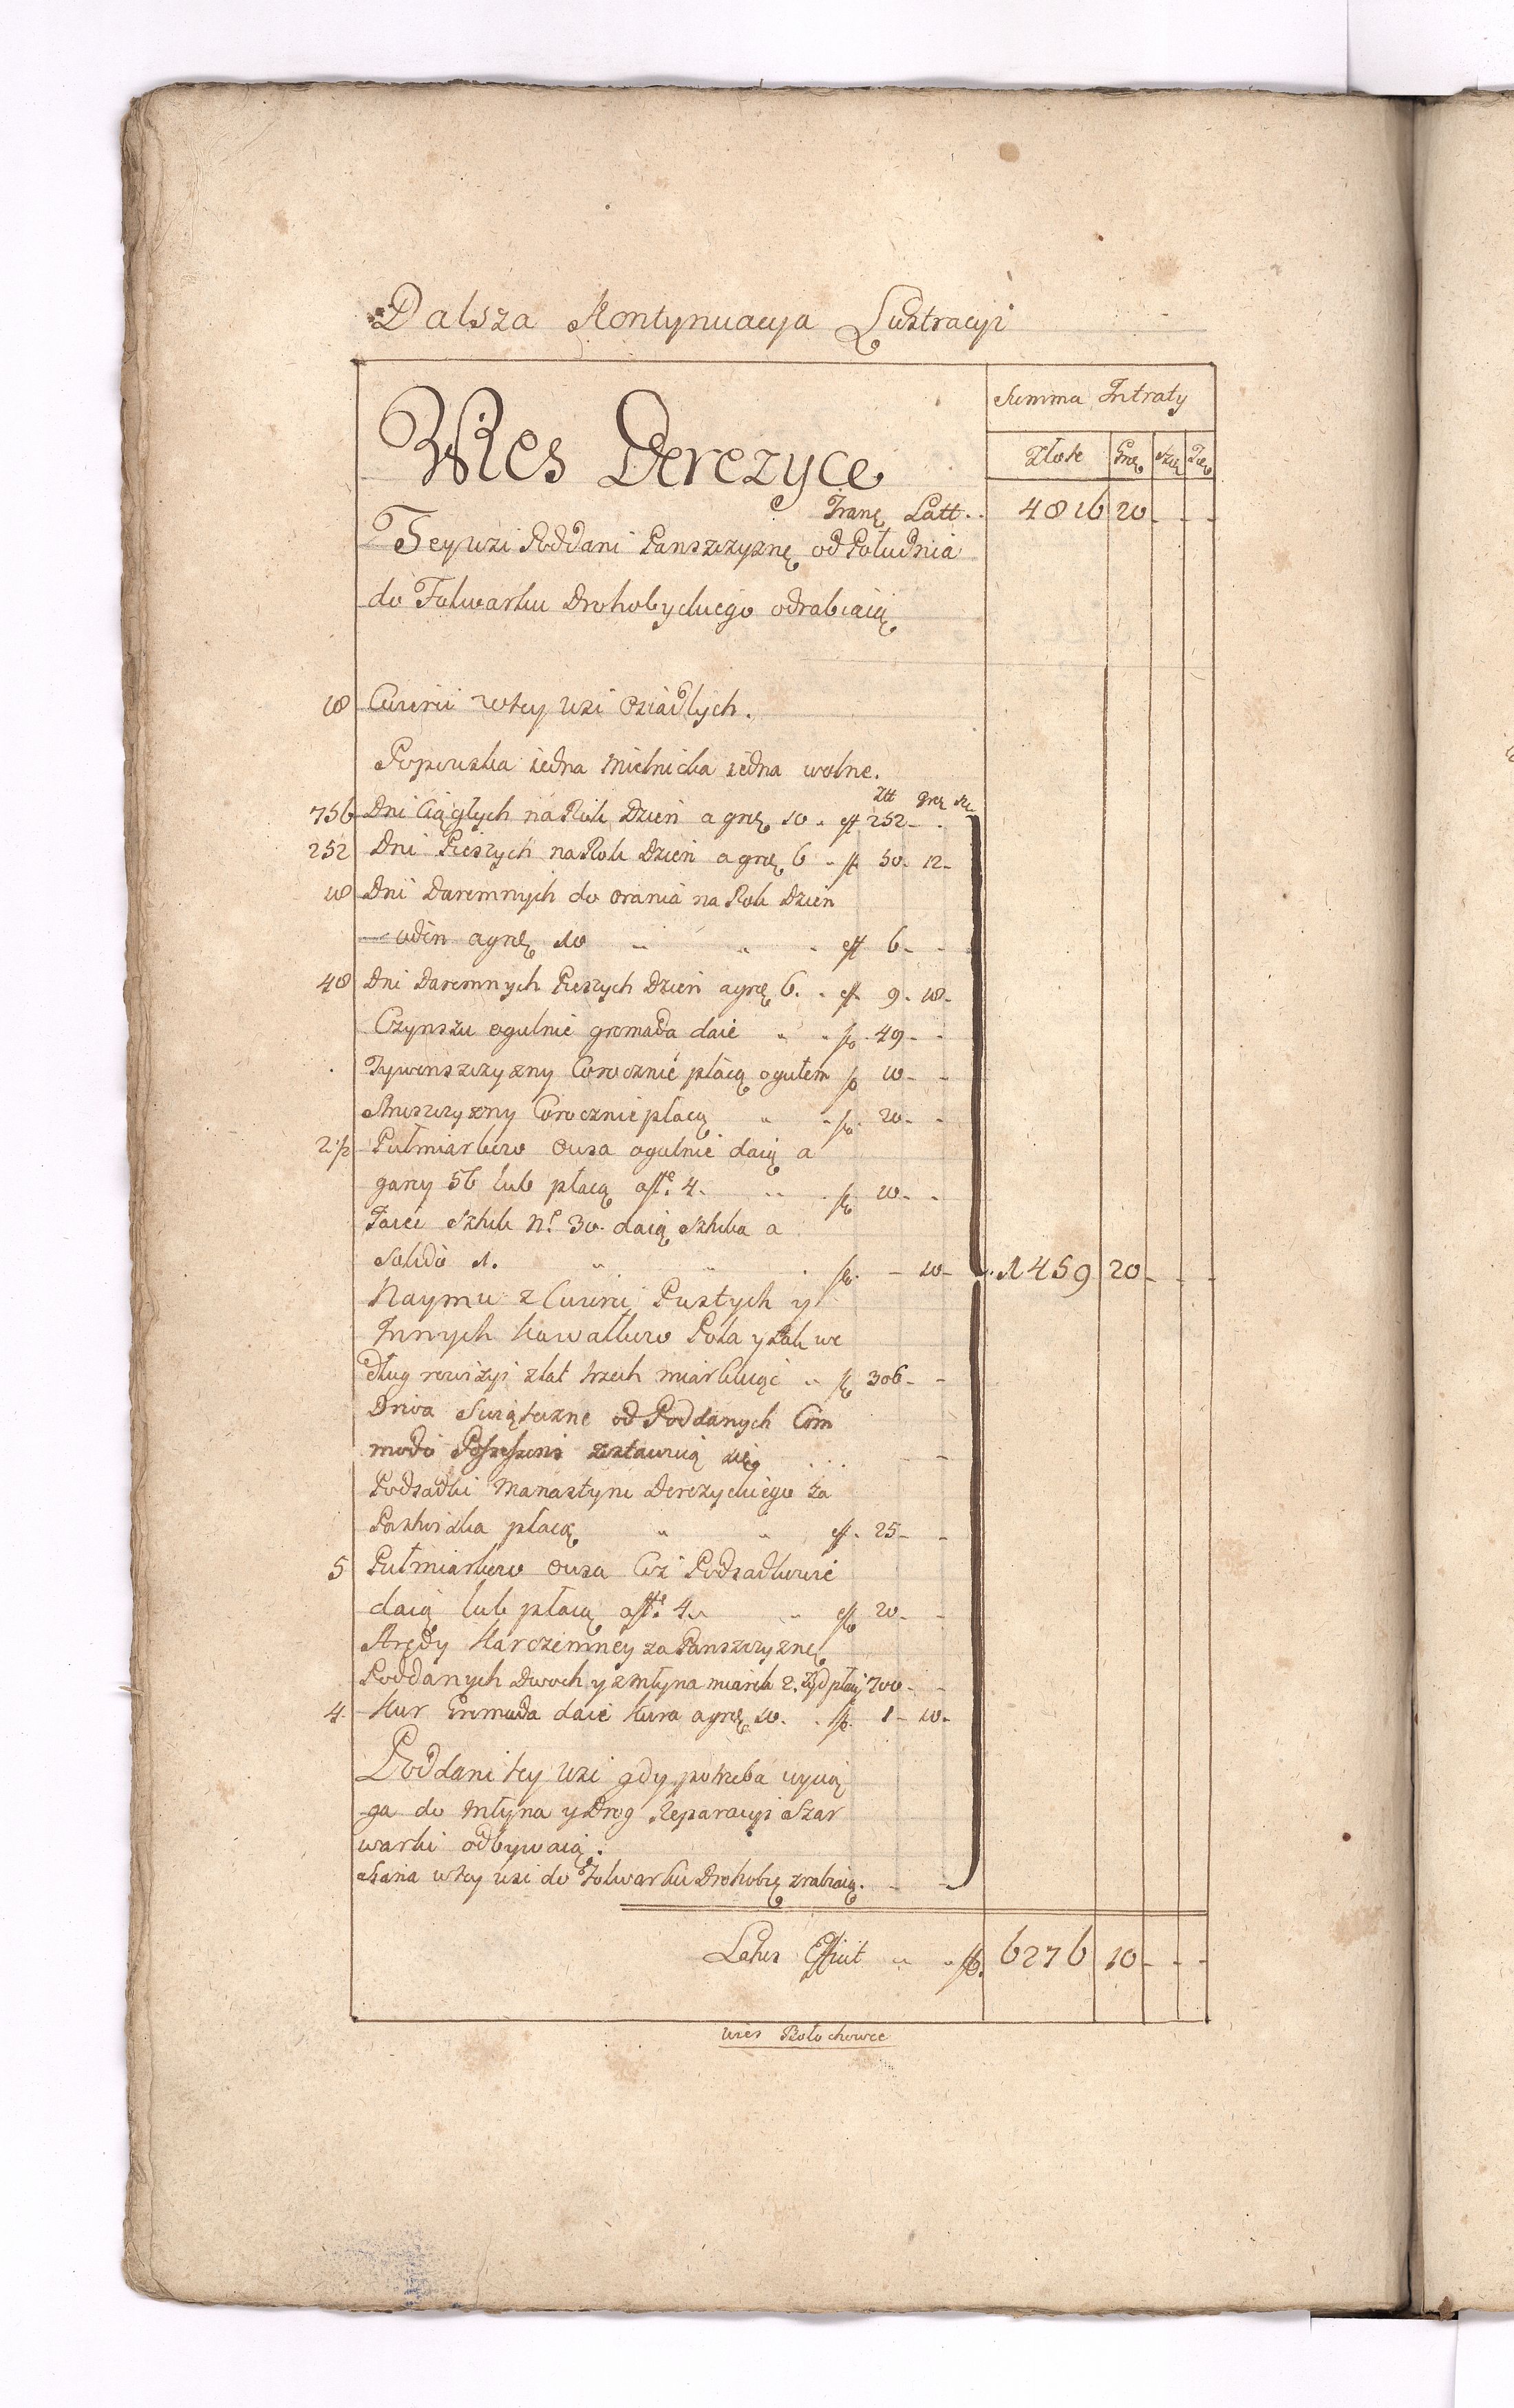 Dalsza Kontynuacya Lustracyi
Summa Intraty
Wies Derezyce
Złote Gro Sze Den
Tranę Latt .. 4816 20 - - -
Tey wsi Poddani Panszczyznę od Południa
do Folwarku Drohobyckiego odrabiaią
18 Cwierci w tey wsi Osiadłych.
Popowska iedna Mielnicka iedna wolne.
Złł Grz Sz
756 Dni Ciągłych na Rok Dzien a grz 10 .. ff 252 - -
252 Dni Pieszych na Rok Dzien a grz 6 .. ff 50 - 12 -
18 Dni Daremnych do orania na Rok Dzien
ieden a grz 10 .. .. ff 6 - -
48 Dni Daremnych Pieszych Dzien a grz 6. .. ff 9 - 18 -
Czynszu ogulnie gromada daie .. .. ff 49 - -
Tywonszczyzny Corocznie płacą ogułem ff 10 - -
Struszczyzny Corocznie płacą .. .. ff 20 - -
2 1/2 Pułmiarkow Owsa ogulnie daią a
garcy 56 lub płacą a ff. 4. .. ff 10 - -
Jaiec Sztuk No 30. daią Sztuka a
Solido 1. .. .. ff - 10 - .. 1459 20 - - -
Naymu z Cwierci Pustych y
Innych kawałkow Pola y Łąk we
dług rewizyi z lat trzech miarkuiąc .. ff 306 - -
Drwa Swiąteczne od Poddanych Com
modo Possessoris zostawuią się . . . - -
Podsadki Manastyru Derezyckiego za
Pastwiska płacą .. .. ff 25 - -
5 Pułmiarkow Owsa Ciż Podsadkowie
daią lub płacą a ff. 4. .. ff 20 - -
Arędy Karczemney za Panszczyznę
Poddanych Dwoch y z Młyna miarek 2. Żyd płaci 700 - -
4 Kur Gromada daie Kura a grz 10. . ff 1 - 10 -
Poddani tey Wsi gdy potrzeba wycią
ga do Młyna y Drog Reparacyi Szar
warki odbywaią.
Siana w tey wsi do Folwarku Drohobyc zrabiaią. - -
Latus Efficit .. .. ff. 6276 10 - - -
Wies Bołochowce